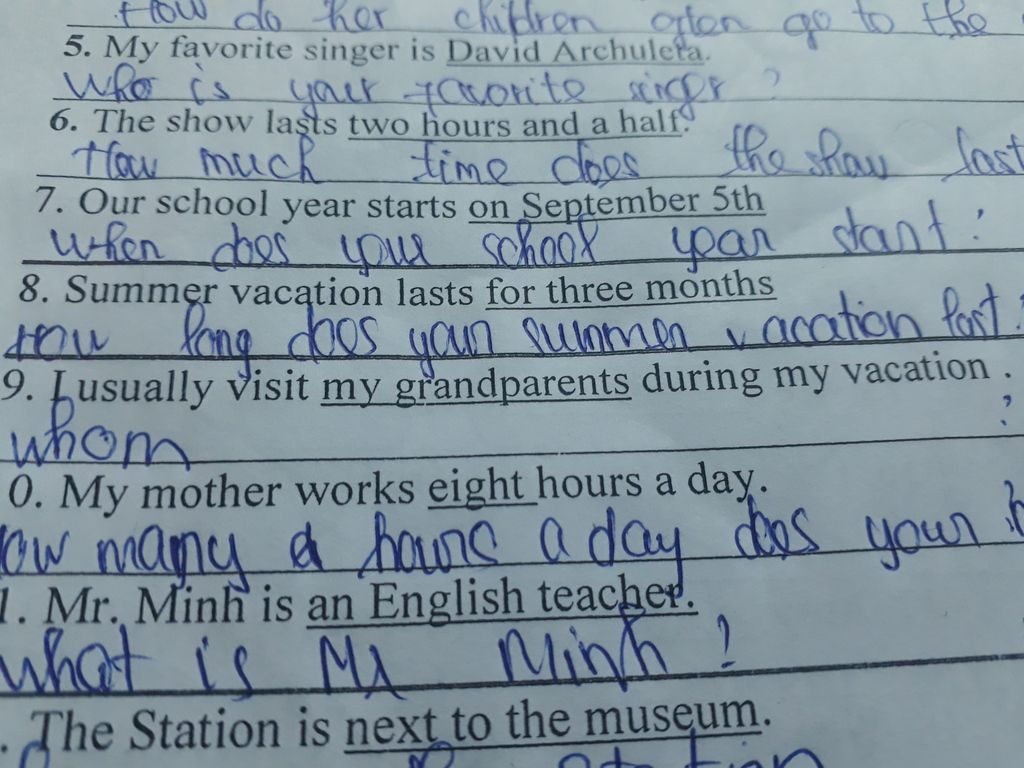 How do her children often go to the
5. My favorite singer is David Archuleta.
Who is your favorite singer ?
6. The show lasts two hours and a half.
How much time does the show last
7. Our school year starts on September 5th
When does your school year start ?
8. Summer vacation lasts for three months
How long does your summer vacation last ?
9. I usually visit my grandparents during my vacation .
whom ?
0. My mother works eight hours a day.
ow many hours a day does your
1. Mr. Minh is an English teacher.
What is Mr Minh ?
. The Station is next to the museum.
station